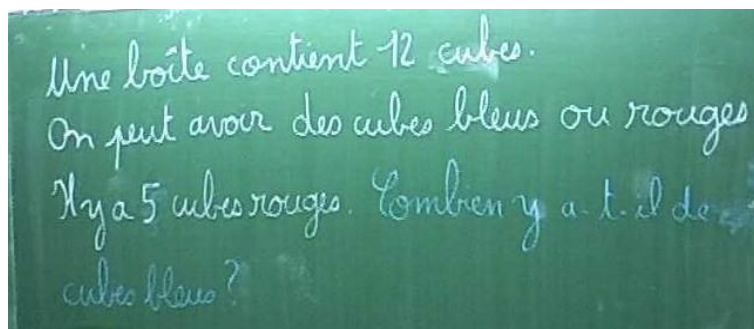 Une boîte contient 12 cubes.
On peut avoir des cubes bleus ou rouges
Il y a 5 cubes rouges. Combien y a-t-il de
cubes bleus ?